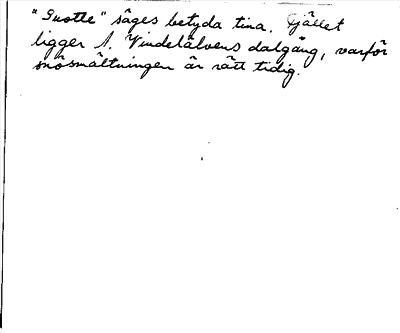 "Suotte" säges betyda tina. Fjället
ligger i Vindelälvens dalgång, varför
snösmältningen är rätt tidig.